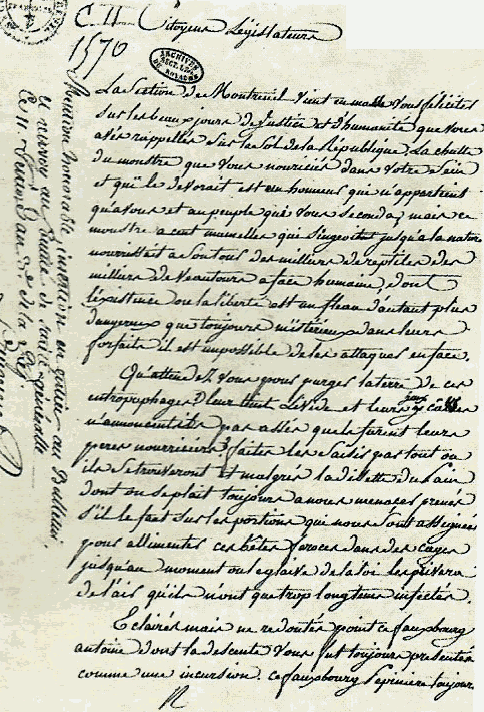 C. II Citoyens Législateurs
1570
ARCHIVES
SECT. LEG.
DU ROYAUME
La Section de Montreuil vient en masse vous féliciter
sur les beaux jours de Justice et d'humanité que vous
avés rappellés sur le Sol de la République. La chutte
du monstre que vous nouriciés dans votre Sein
et qui le devorait est un honneur que n'appartient
qu'avous et au peuple qui vous seconda, mais ce
monstre a cent mamelles qui singeoitet jusqu'a la nature
nourrissait a son tour des milliers de reptiles des
milliers de veautours a face humaine, dont
l'existence ou la liberté est un fleau d'autant plus
dangereux que toujours mistérieux dans leurs
forfaits il est impossible de les attaquer en face.
Qu'attendez vous pour purger la terre de ces
antropophages ? leur teint Livide et leurs yeux câves
n'annoncent ils pas assés quels furent leurs
peres nourriciers ? faites les Saisir partout ou
ils se trouveront et malgrés la disette du Pain
dont on se plait toujours a nous menacer prenés
s'il le faut sur les portions qui nous sont assignées
pour allimenter ces bêtes feroces dans des cages
jusqu'au moment ou le glaive de la loi les privera
de l'air qu'ils n'ont que trop longtems infectés.
Eclairés mais ne redoutés point ce fauxbourg
antoine dont la descente vous fut toujours présentée
comme une incursion. Ce fauxbourg Pepiniere toujours
Mention honorable, insertion en entier au Bulletin
et renvoi au Comité de Sureté générale
Ce 11 an 3e de la Rep.